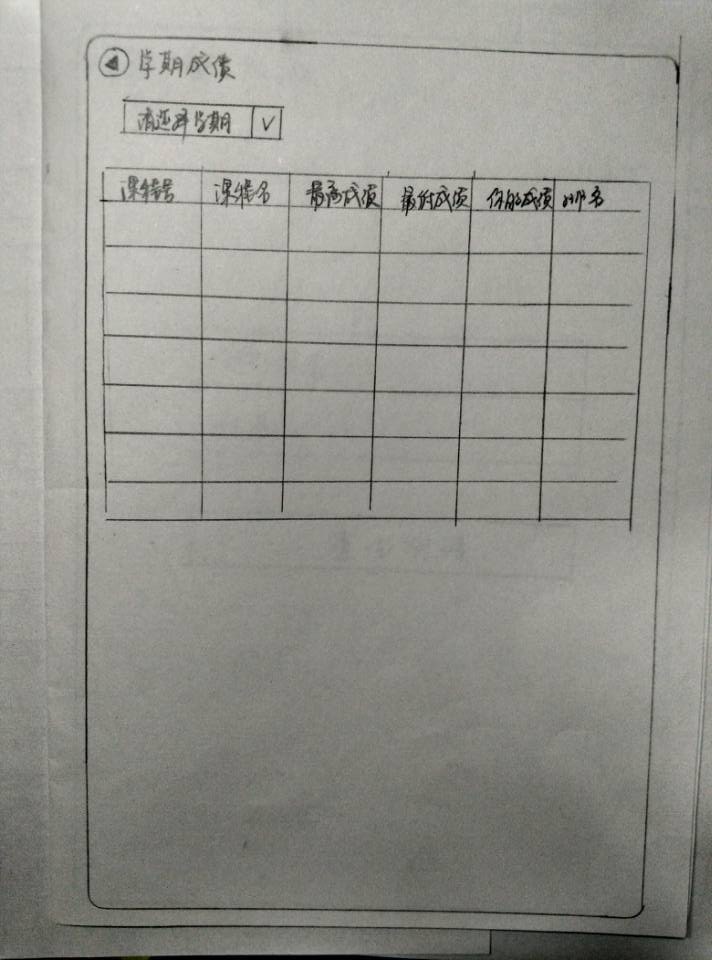 学期成绩
请选择学期
课程号 课程名 最高成绩 最低成绩 你的成绩 排名